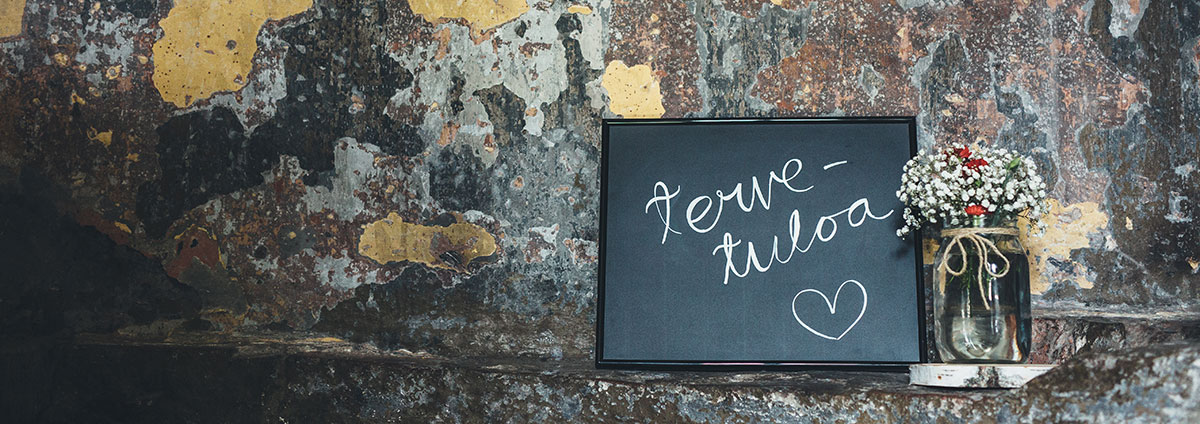 terve-
tuloa